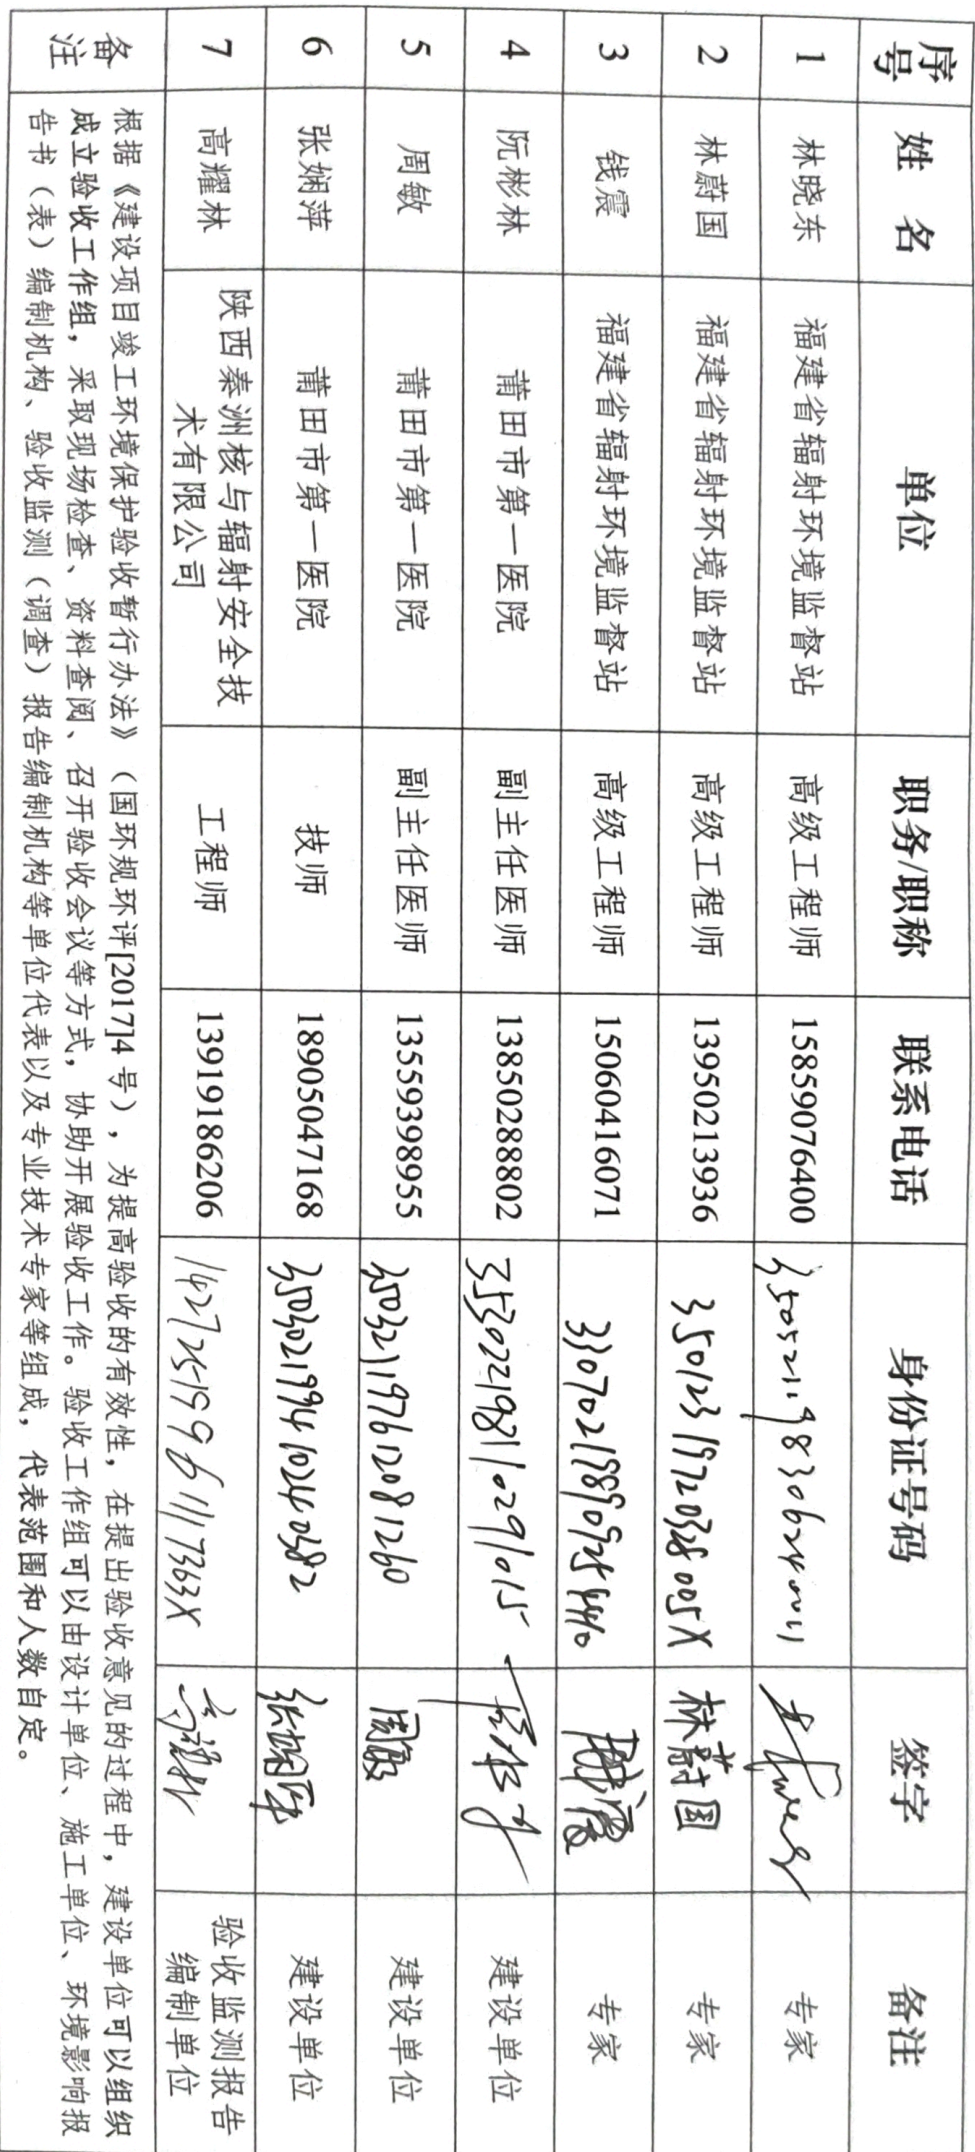 序号 姓 名 单位 职务/职称 联系电话 身份证号码 签字 备注
1 林晓东 福建省辐射环境监督站 高级工程师 15859076400 专家
2 林蔚国 福建省辐射环境监督站 高级工程师 13950213936 35012319720328005X 林蔚国 专家
3 钱震 福建省辐射环境监督站 高级工程师 15060416071 专家
4 阮彬林 莆田市第一医院 副主任医师 13850288802 建设单位
5 周敏 莆田市第一医院 副主任医师 13559398955 350321197612081260 周敏 建设单位
6 张娴萍 莆田市第一医院 技师 18905047168 350302199410240382 张娴萍 建设单位
7 高耀林 陕西秦洲核与辐射安全技术有限公司 工程师 13919186206 14272519961117363X 高耀林 验收监测报告编制单位
备注 根据《建设项目竣工环境保护验收暂行办法》（国环规环评[2017]4 号），为提高验收的有效性，在提出验收意见的过程中，建设单位可以组织
成立验收工作组，采取现场检查、资料查阅、召开验收会议等方式，协助开展验收工作。验收工作组可以由设计单位、施工单位、环境影响报
告书（表）编制机构、验收监测（调查）报告编制机构等单位代表以及专业技术专家等组成，代表范围和人数自定。